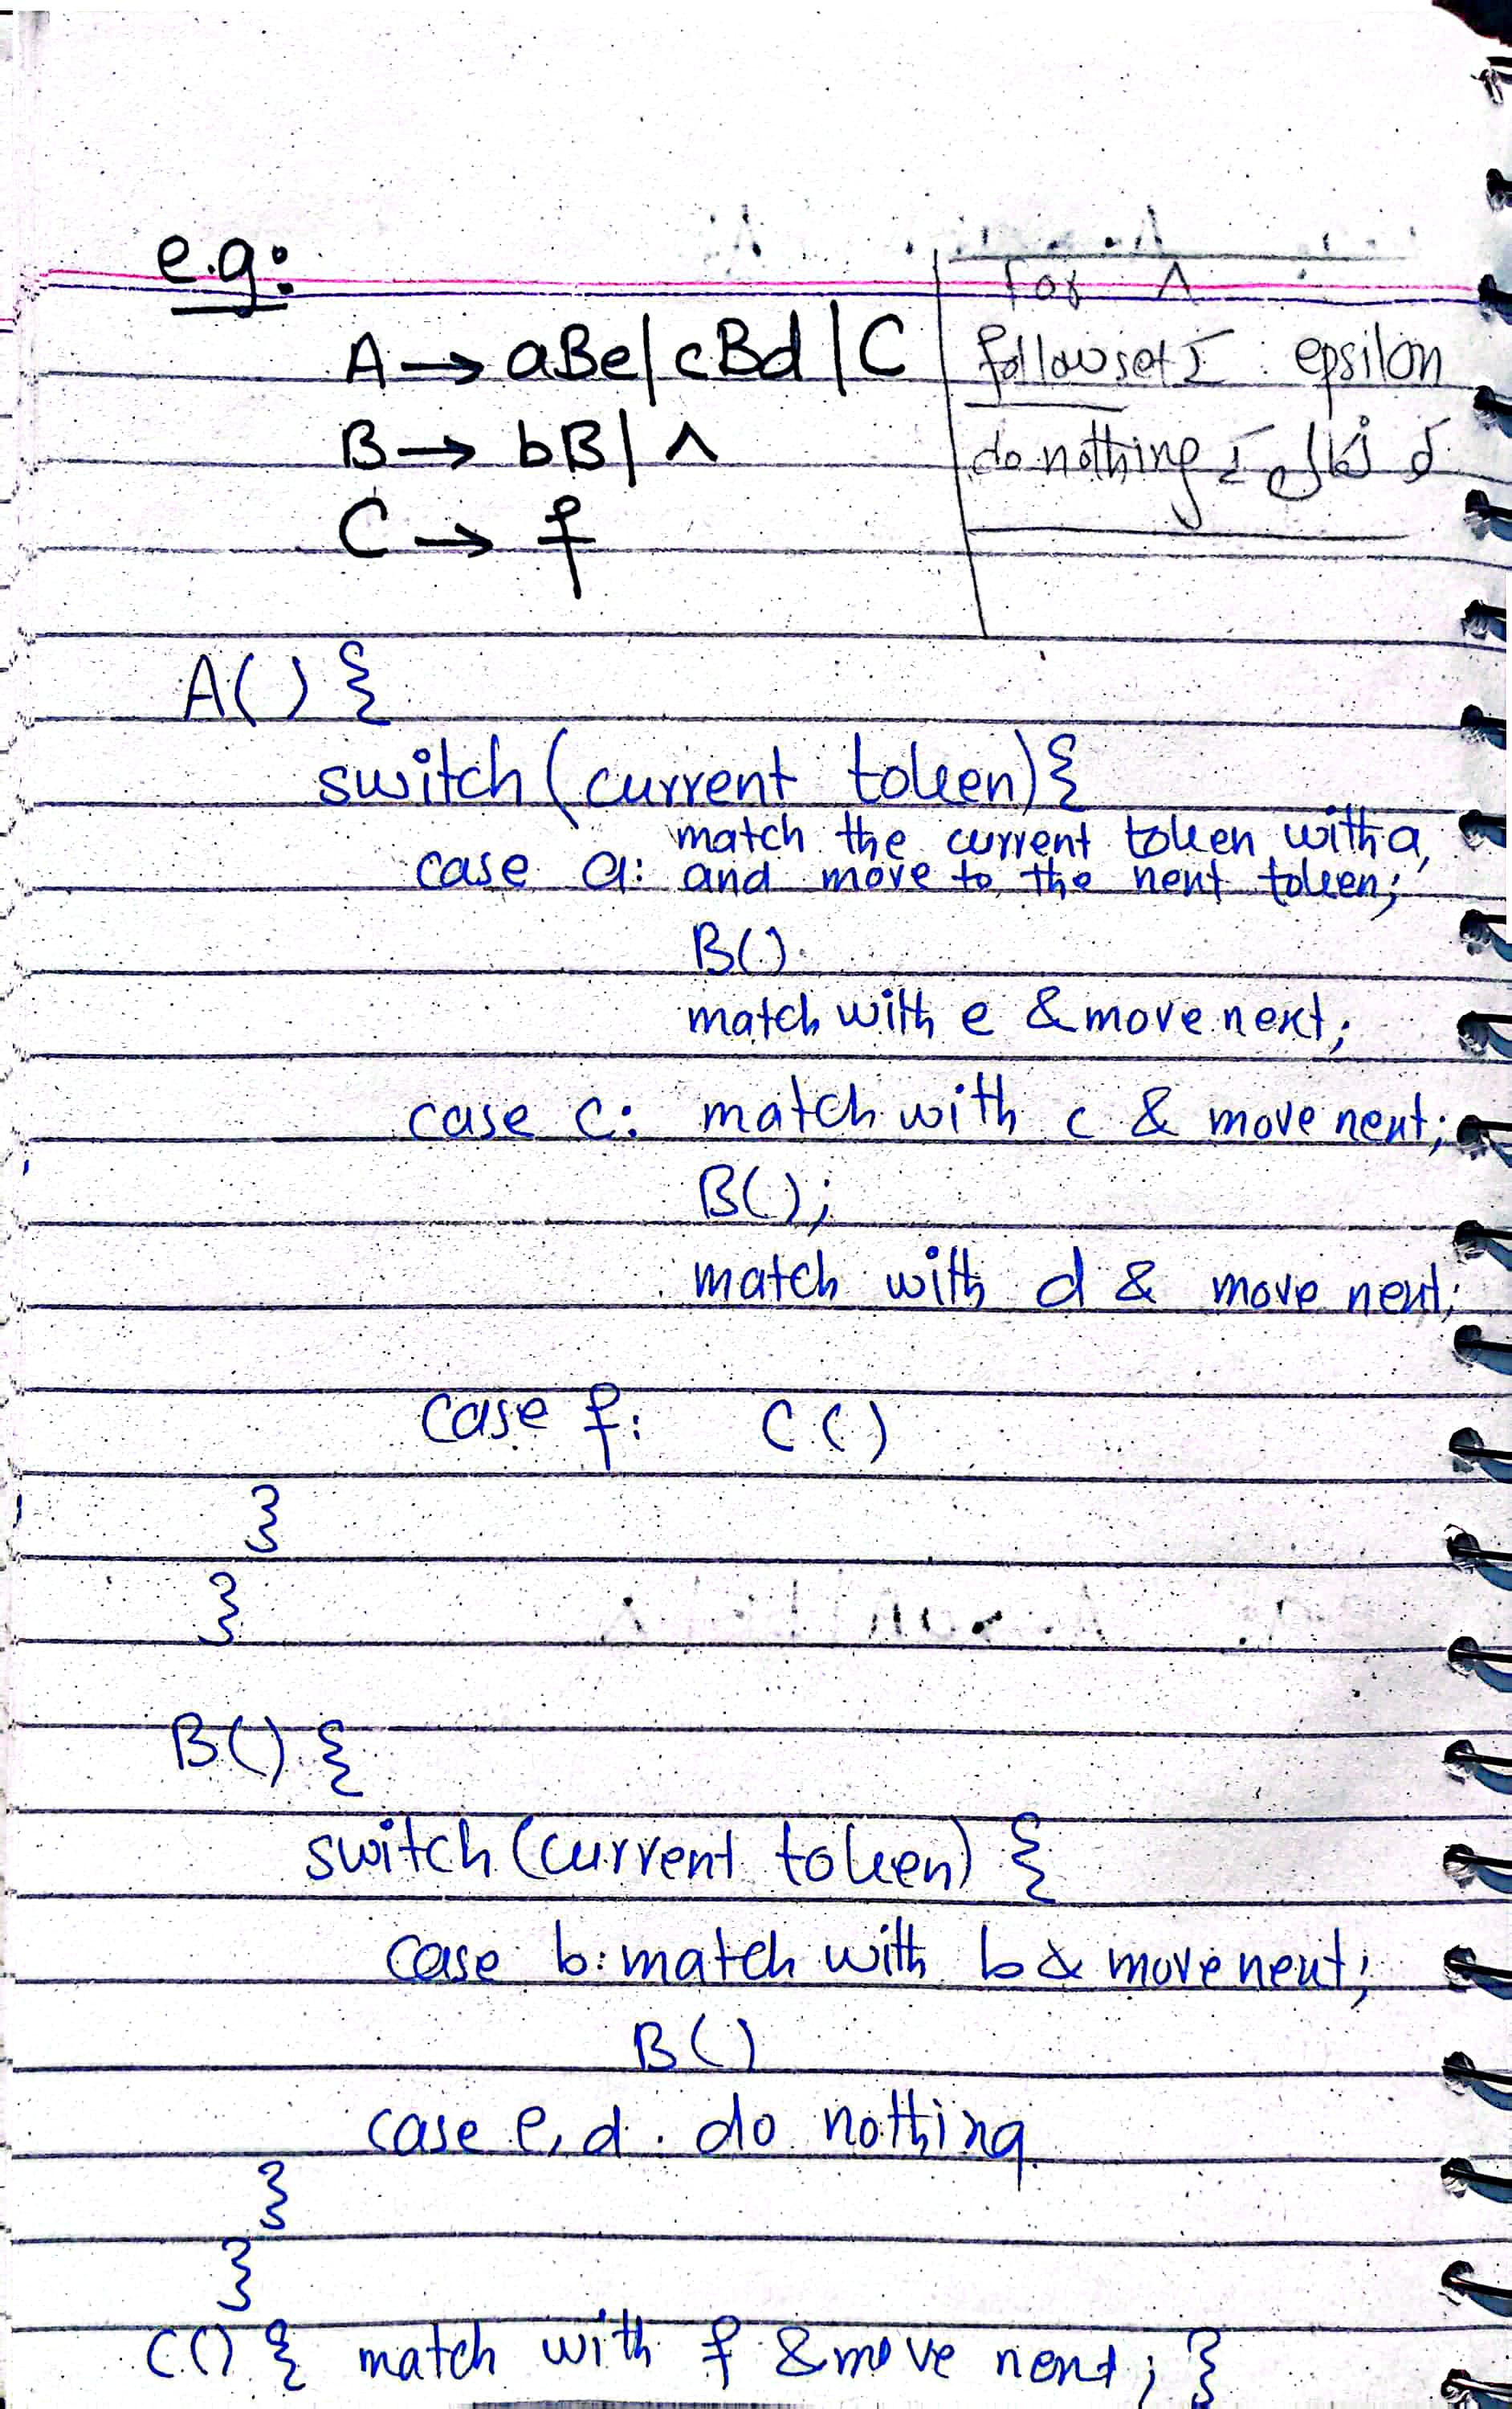 e.g:
A → aBe | cBd | C
B → bB | ^
C → f
For ^
followset سے epsilon
do nothing سے نکالو گے
A() {
switch (current token) {
match the current token with a,
case a: and move to the next token;
B()
match with e & move next;
case c: match with c & move next;
B();
match with d & move next;
case f: C()
}
}
B() {
switch (current token) {
case b: match with b & move next;
B()
case e, d : do nothing.
}
}
C() { match with f & move next; }